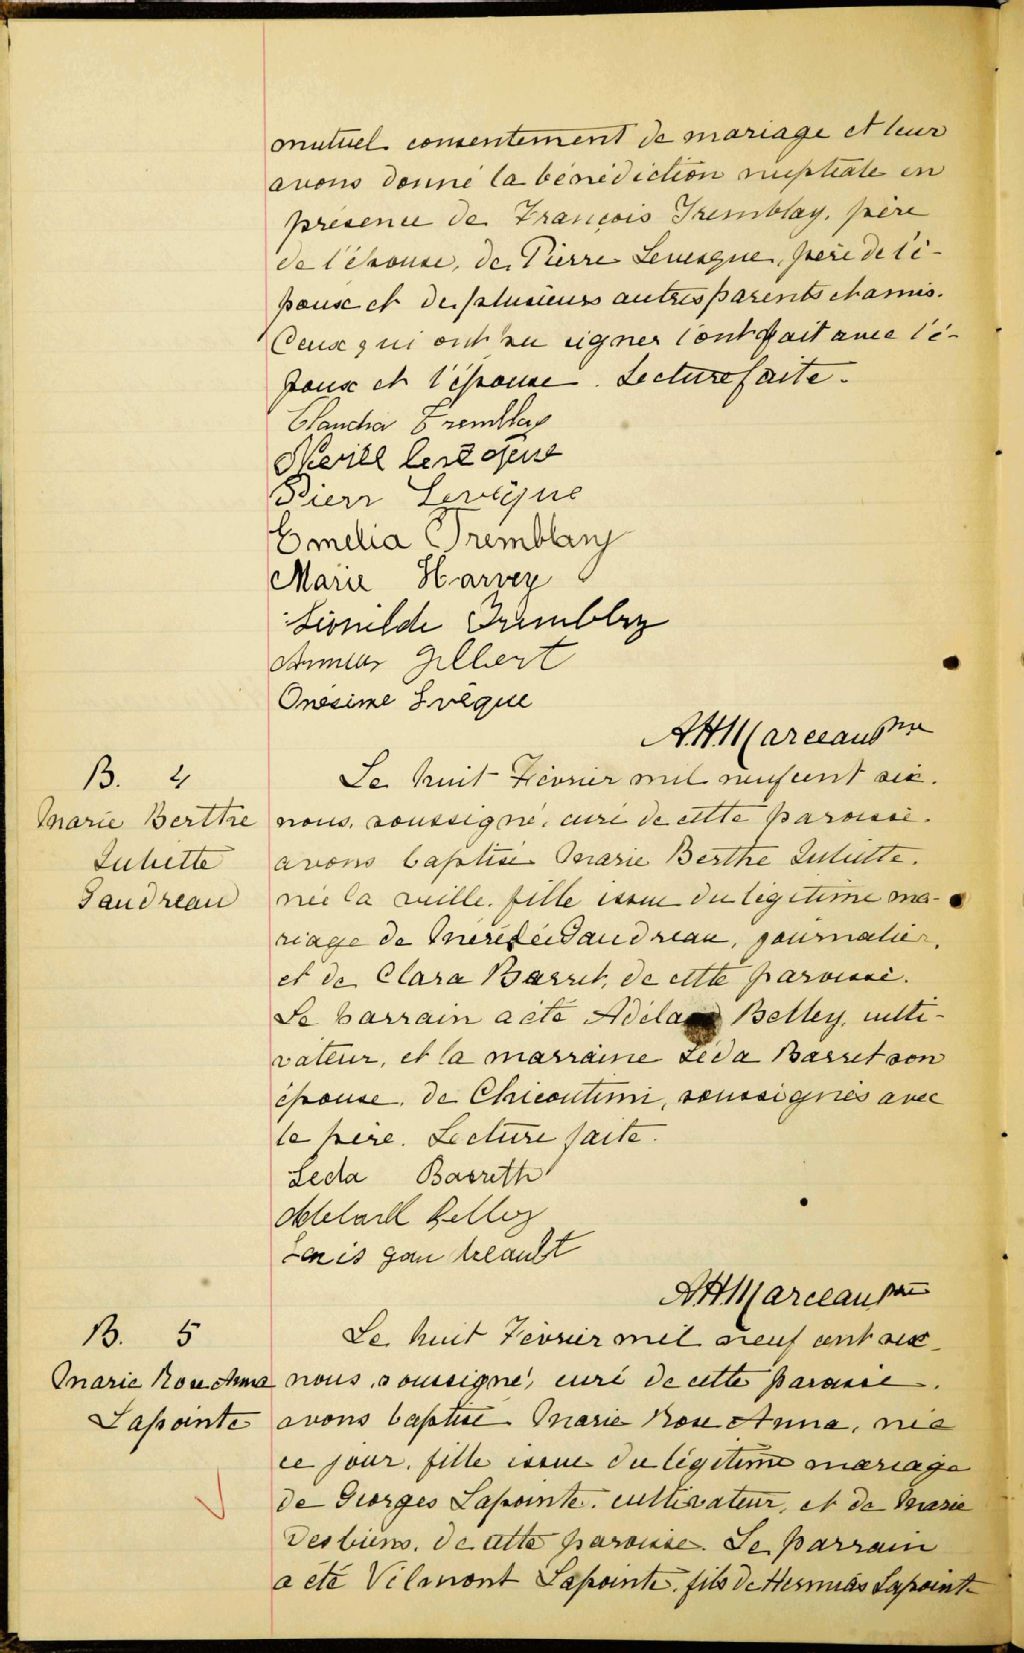 mutuel consentement de mariage et leur
avons donné la bénédiction nuptiale en
présence de François Tremblay, père
de l'épouse, de Pierre Levesque, père de l'é-
poux et de plusieurs autres parents et amis.
Ceux qui ont su signer l'ont fait avec l'é-
poux et l'épouse. Lecture faite.
Claudia Tremblay
Pierr Levêque
Emelia Tremblay
Marie Harvey
Léonilde Tremblay
Gilbert
Onésime Lvêque
A.H. Marceau Ptre
B. 4
Marie Berthe
Juliette
Gaudreau
Le huit Février mil neuf cent six,
nous, soussigné, curé de cette paroisse,
avons baptisé Marie Berthe Juliette,
née la veille, fille issue du légitime ma-
riage de Gaudreau, journalier,
et de Clara Basset, de cette paroisse.
Le parrain a été Adélard Belley, culti-
vateur, et la marraine Léda Basset son
épouse, de Chicoutimi, soussignés avec
le père. Lecture faite.
Leda Bassette
Adelard Belley
A.H. Marceau Ptre
B. 5
Marie Rose Anna
Lapointe
Le huit Février mil neuf cent six,
nous, soussigné, curé de cette paroisse,
avons baptisé Marie Rose Anna, née
ce jour, fille issue du légitime mariage
de Georges Lapointe, cultivateur, et de Marie
Desbiens, de cette paroisse. Le parrain
a été Vilmont Lapointe, fils de Herméas Lapointe